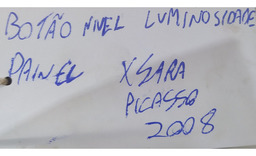 BOTÃO NIVEL LUMINOSIDADE
PAINEL XSARA
PICASSO
2008